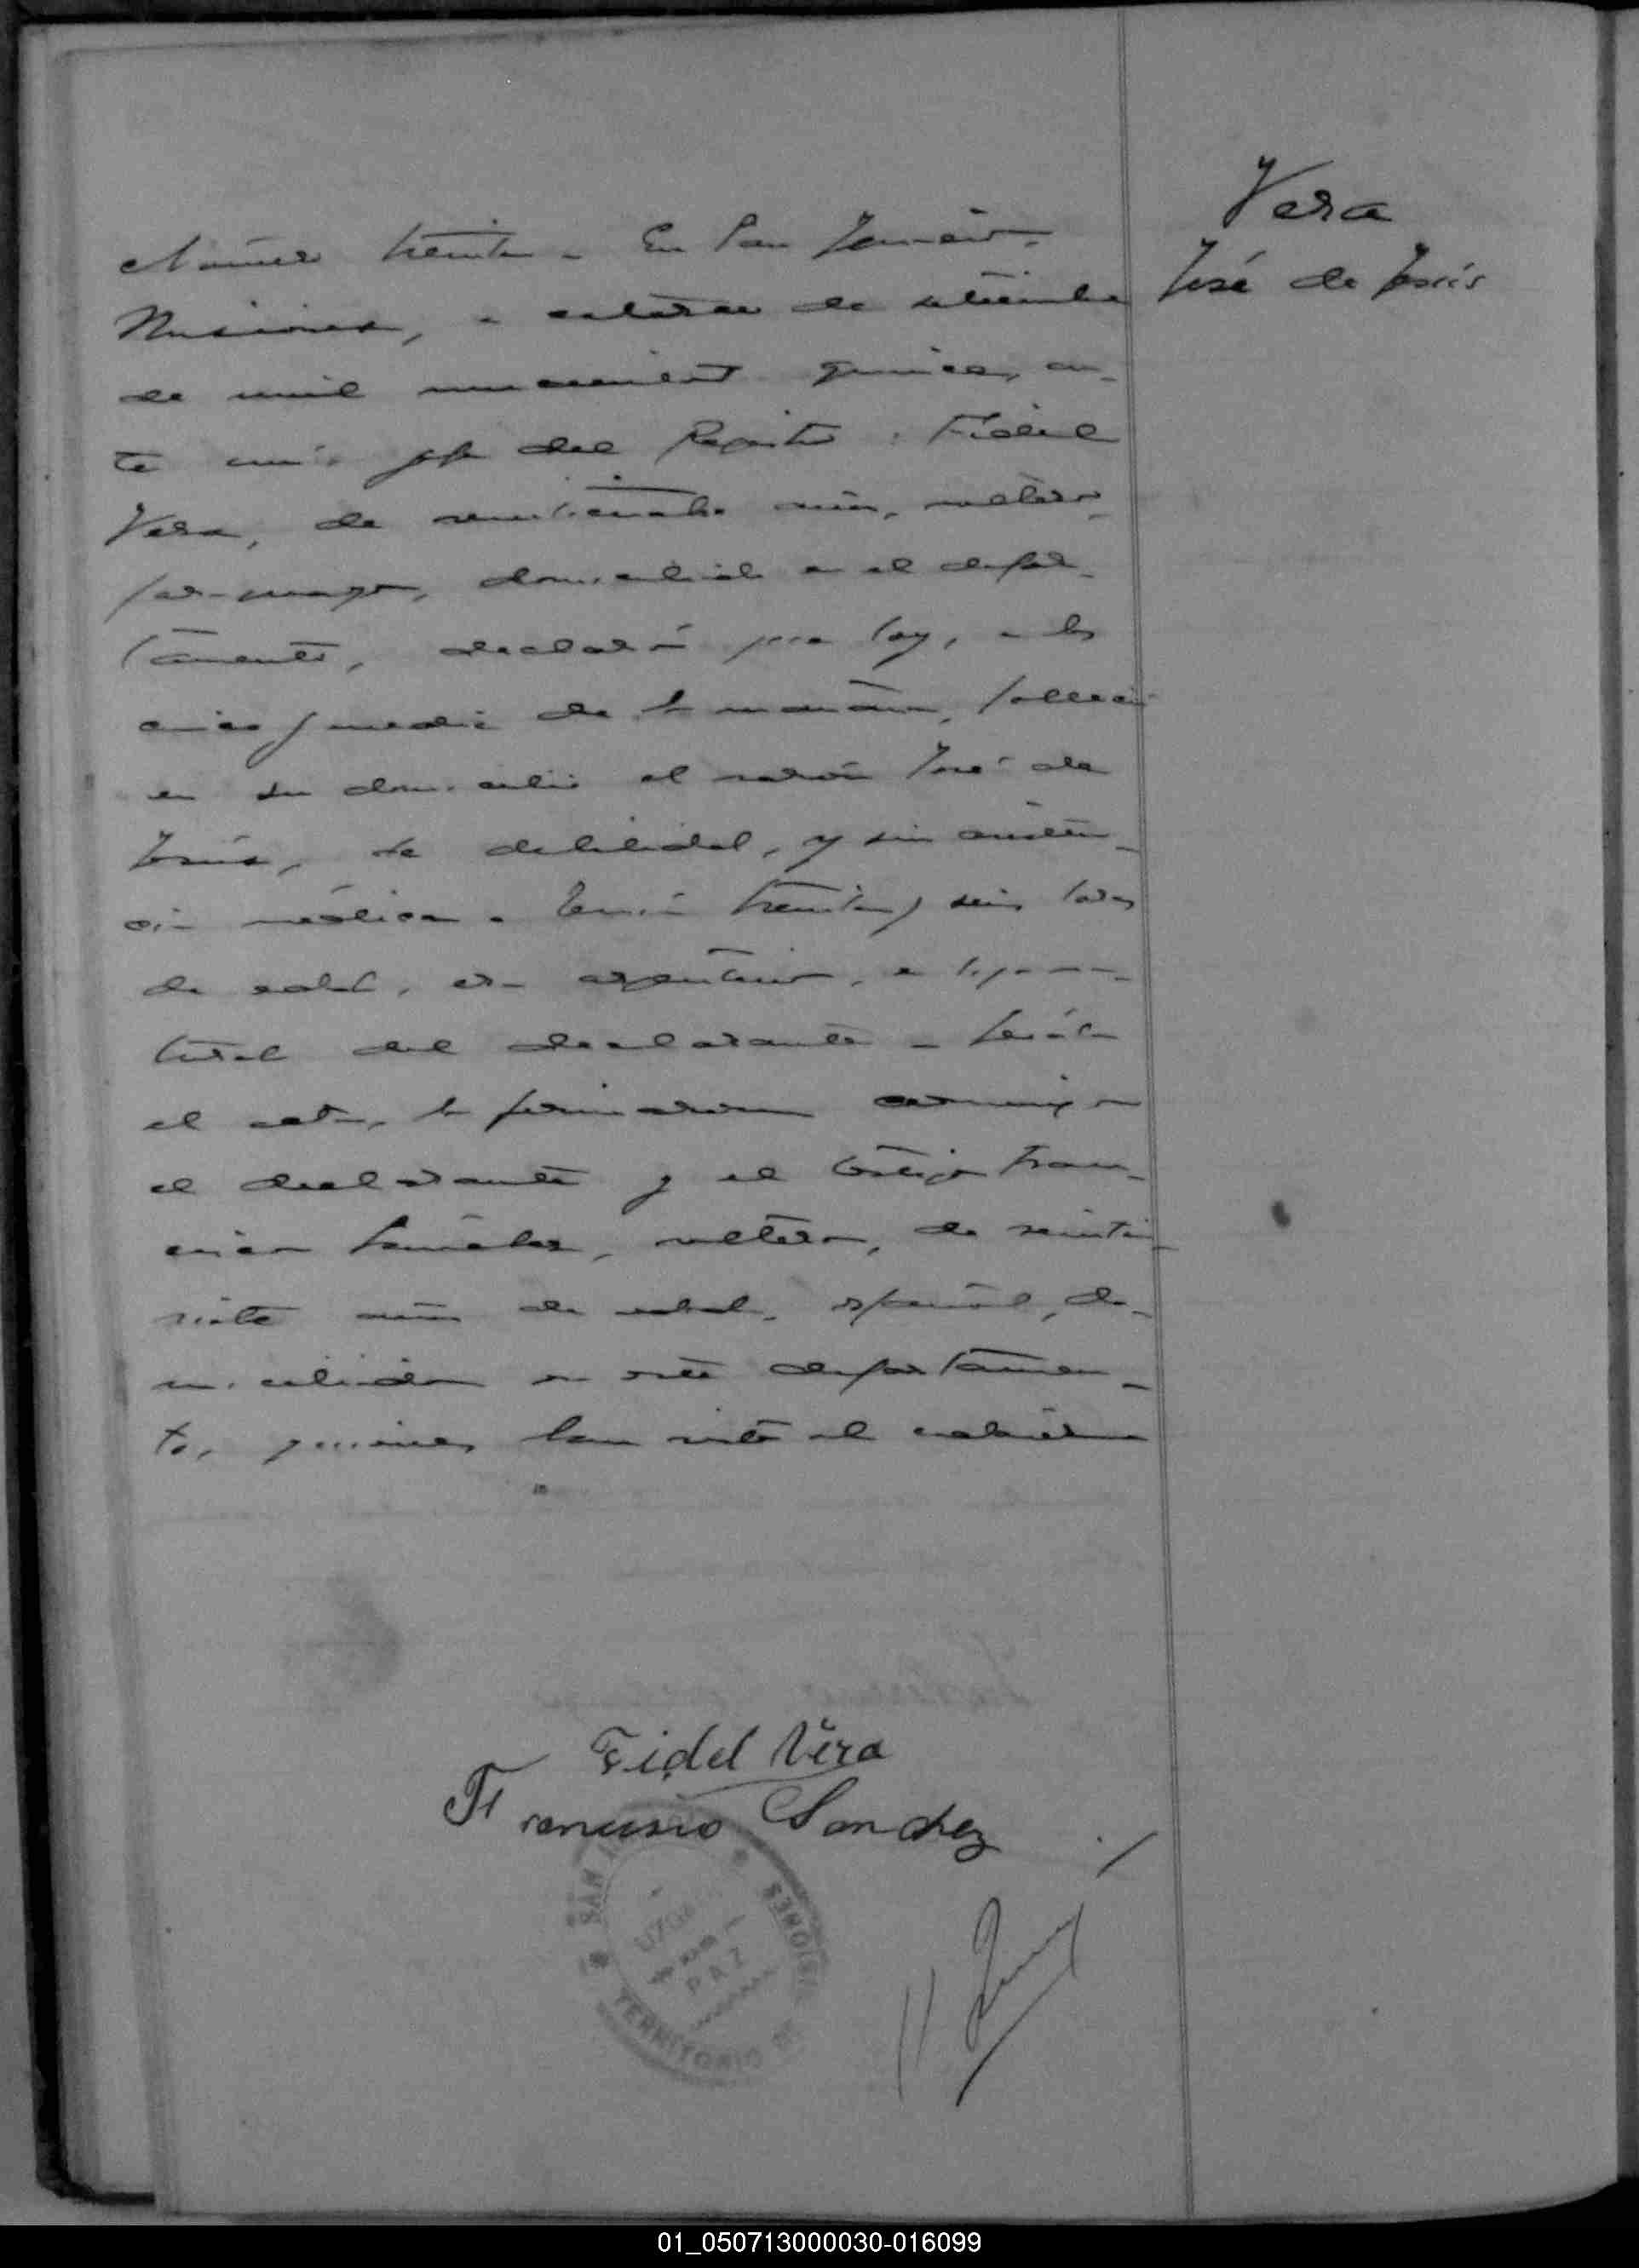 Vera
José de Jesús
Número treinta - En San Ignacio,
Misiones, a catorce de setiembre
de mil novecientos quince, an-
te mi jefe del Registro: Fidel
Vera, de veintiocho años, soltero,
paraguayo, domiciliado en el depar-
tamento, declaró que hoy, a las
cinco y media de la mañana, falleció
en su domicilio el varón José de
Jesús, de debilidad, y sin asisten-
cia médica. Tenía treinta y seis horas
de edad, era argentino, e hijo na-
tural del declarante - Leída
el acta, la firmaron conmigo
el declarante y el testigo Fran-
cisco Sánchez, soltero, de veinti-
siete años de edad, español, do-
miciliado en este departamen-
to, quienes han visto el cadáver
Fidel Vera
Francisco Sanchez
SAN MISIONES
JUZGADO
PAZ
TERRITORIO DE
01_050713000030-016099